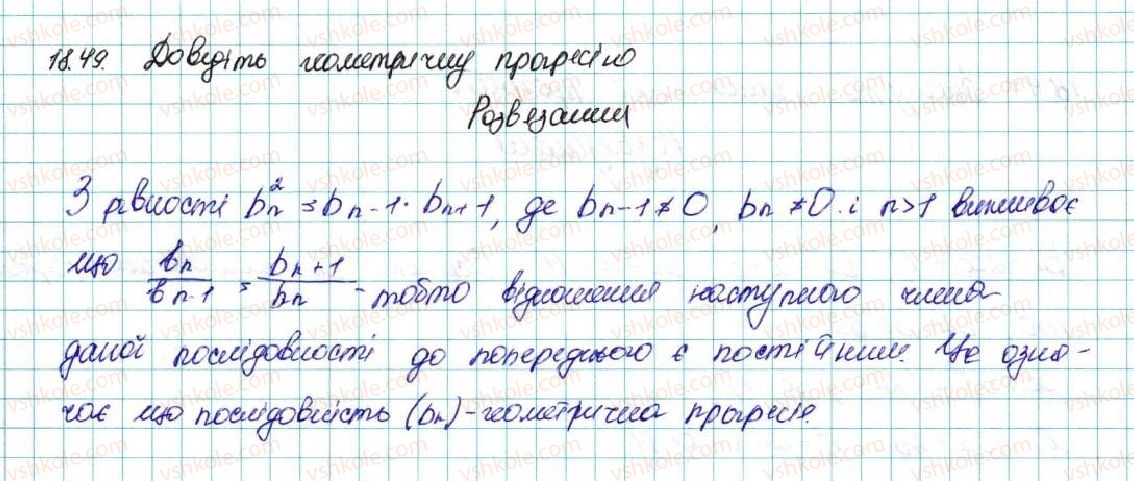 18.49. Доведіть геометричну прогресію
Розвезання
З рівності bₙ² = bₙ₋₁ · bₙ₊₁, де bₙ₋₁ ≠ 0, bₙ ≠ 0 і n>1 випливає
що bₙ/bₙ₋₁ = bₙ₊₁/bₙ - тобто відношення наступного члена
даної послідовності до попереднього є постійним. Це озна-
чає що послідовність (bₙ) - геометрична прогресія.